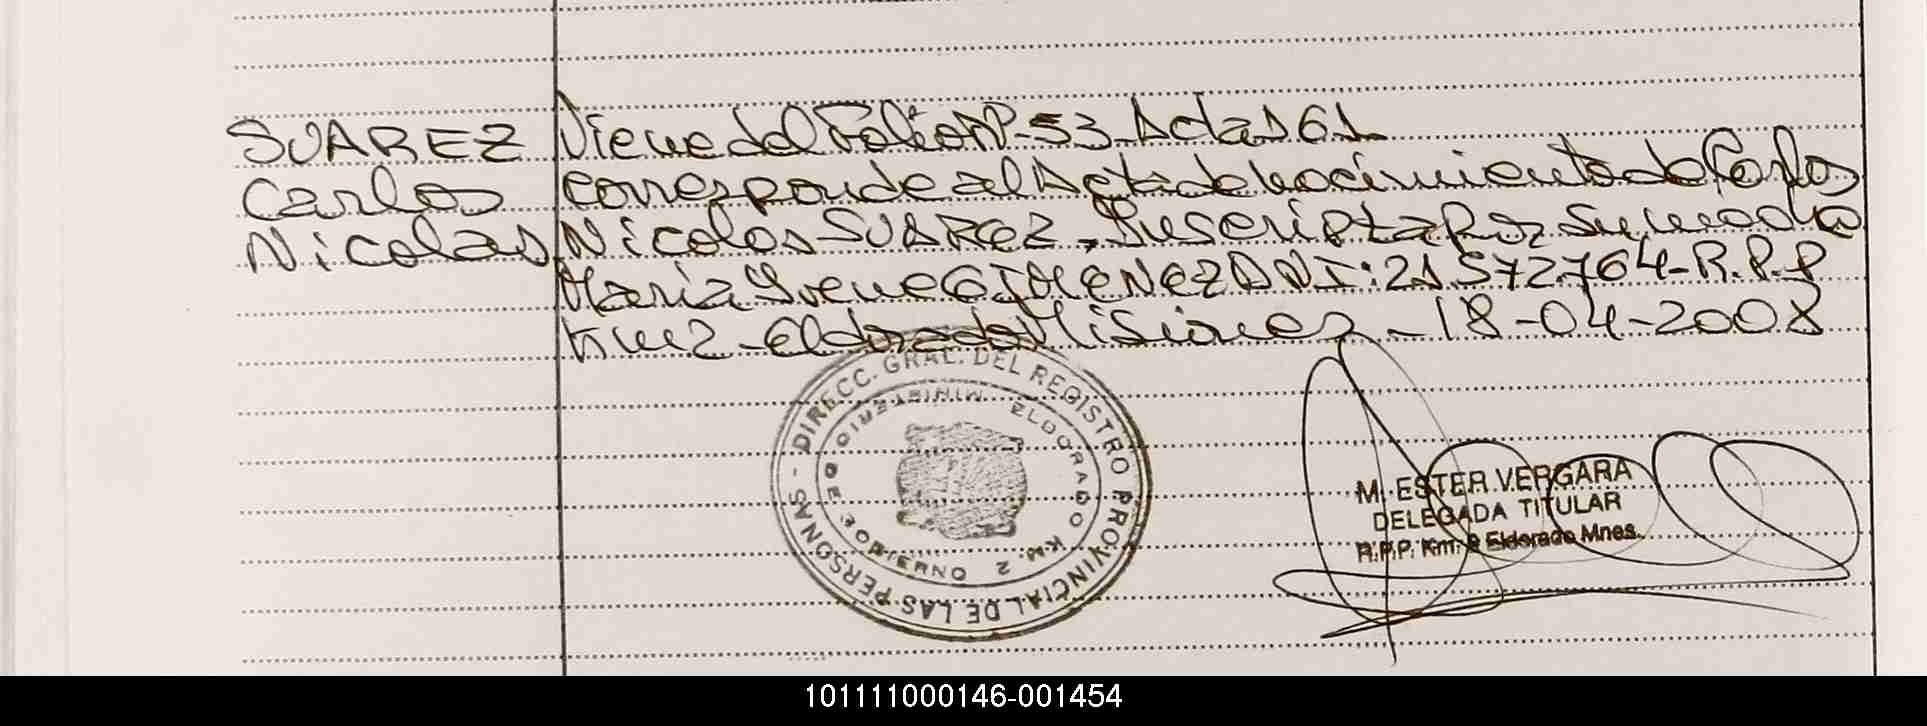 SUAREZ Viene del Folio Nº 53 Acta 161
Carlos corresponde al Acta de Nacimiento de Carlos
Nicolas Nicolas SUAREZ, Inscripta por su madre
Maria Irene GIMENEZ DNI: 21572764-R.P.P
Km 2 - Eldorado Misiones - 18-04-2008
DIRECC. GRAL. DEL REGISTRO PROVINCIAL DE LAS PERSONAS -
MINISTERIO DE GOBIERNO
ELDORADO KM. 2
M. ESTER VERGARA
DELEGADA TITULAR
R.P.P. Km. 2 Eldorado Mnes.
101111000146-001454